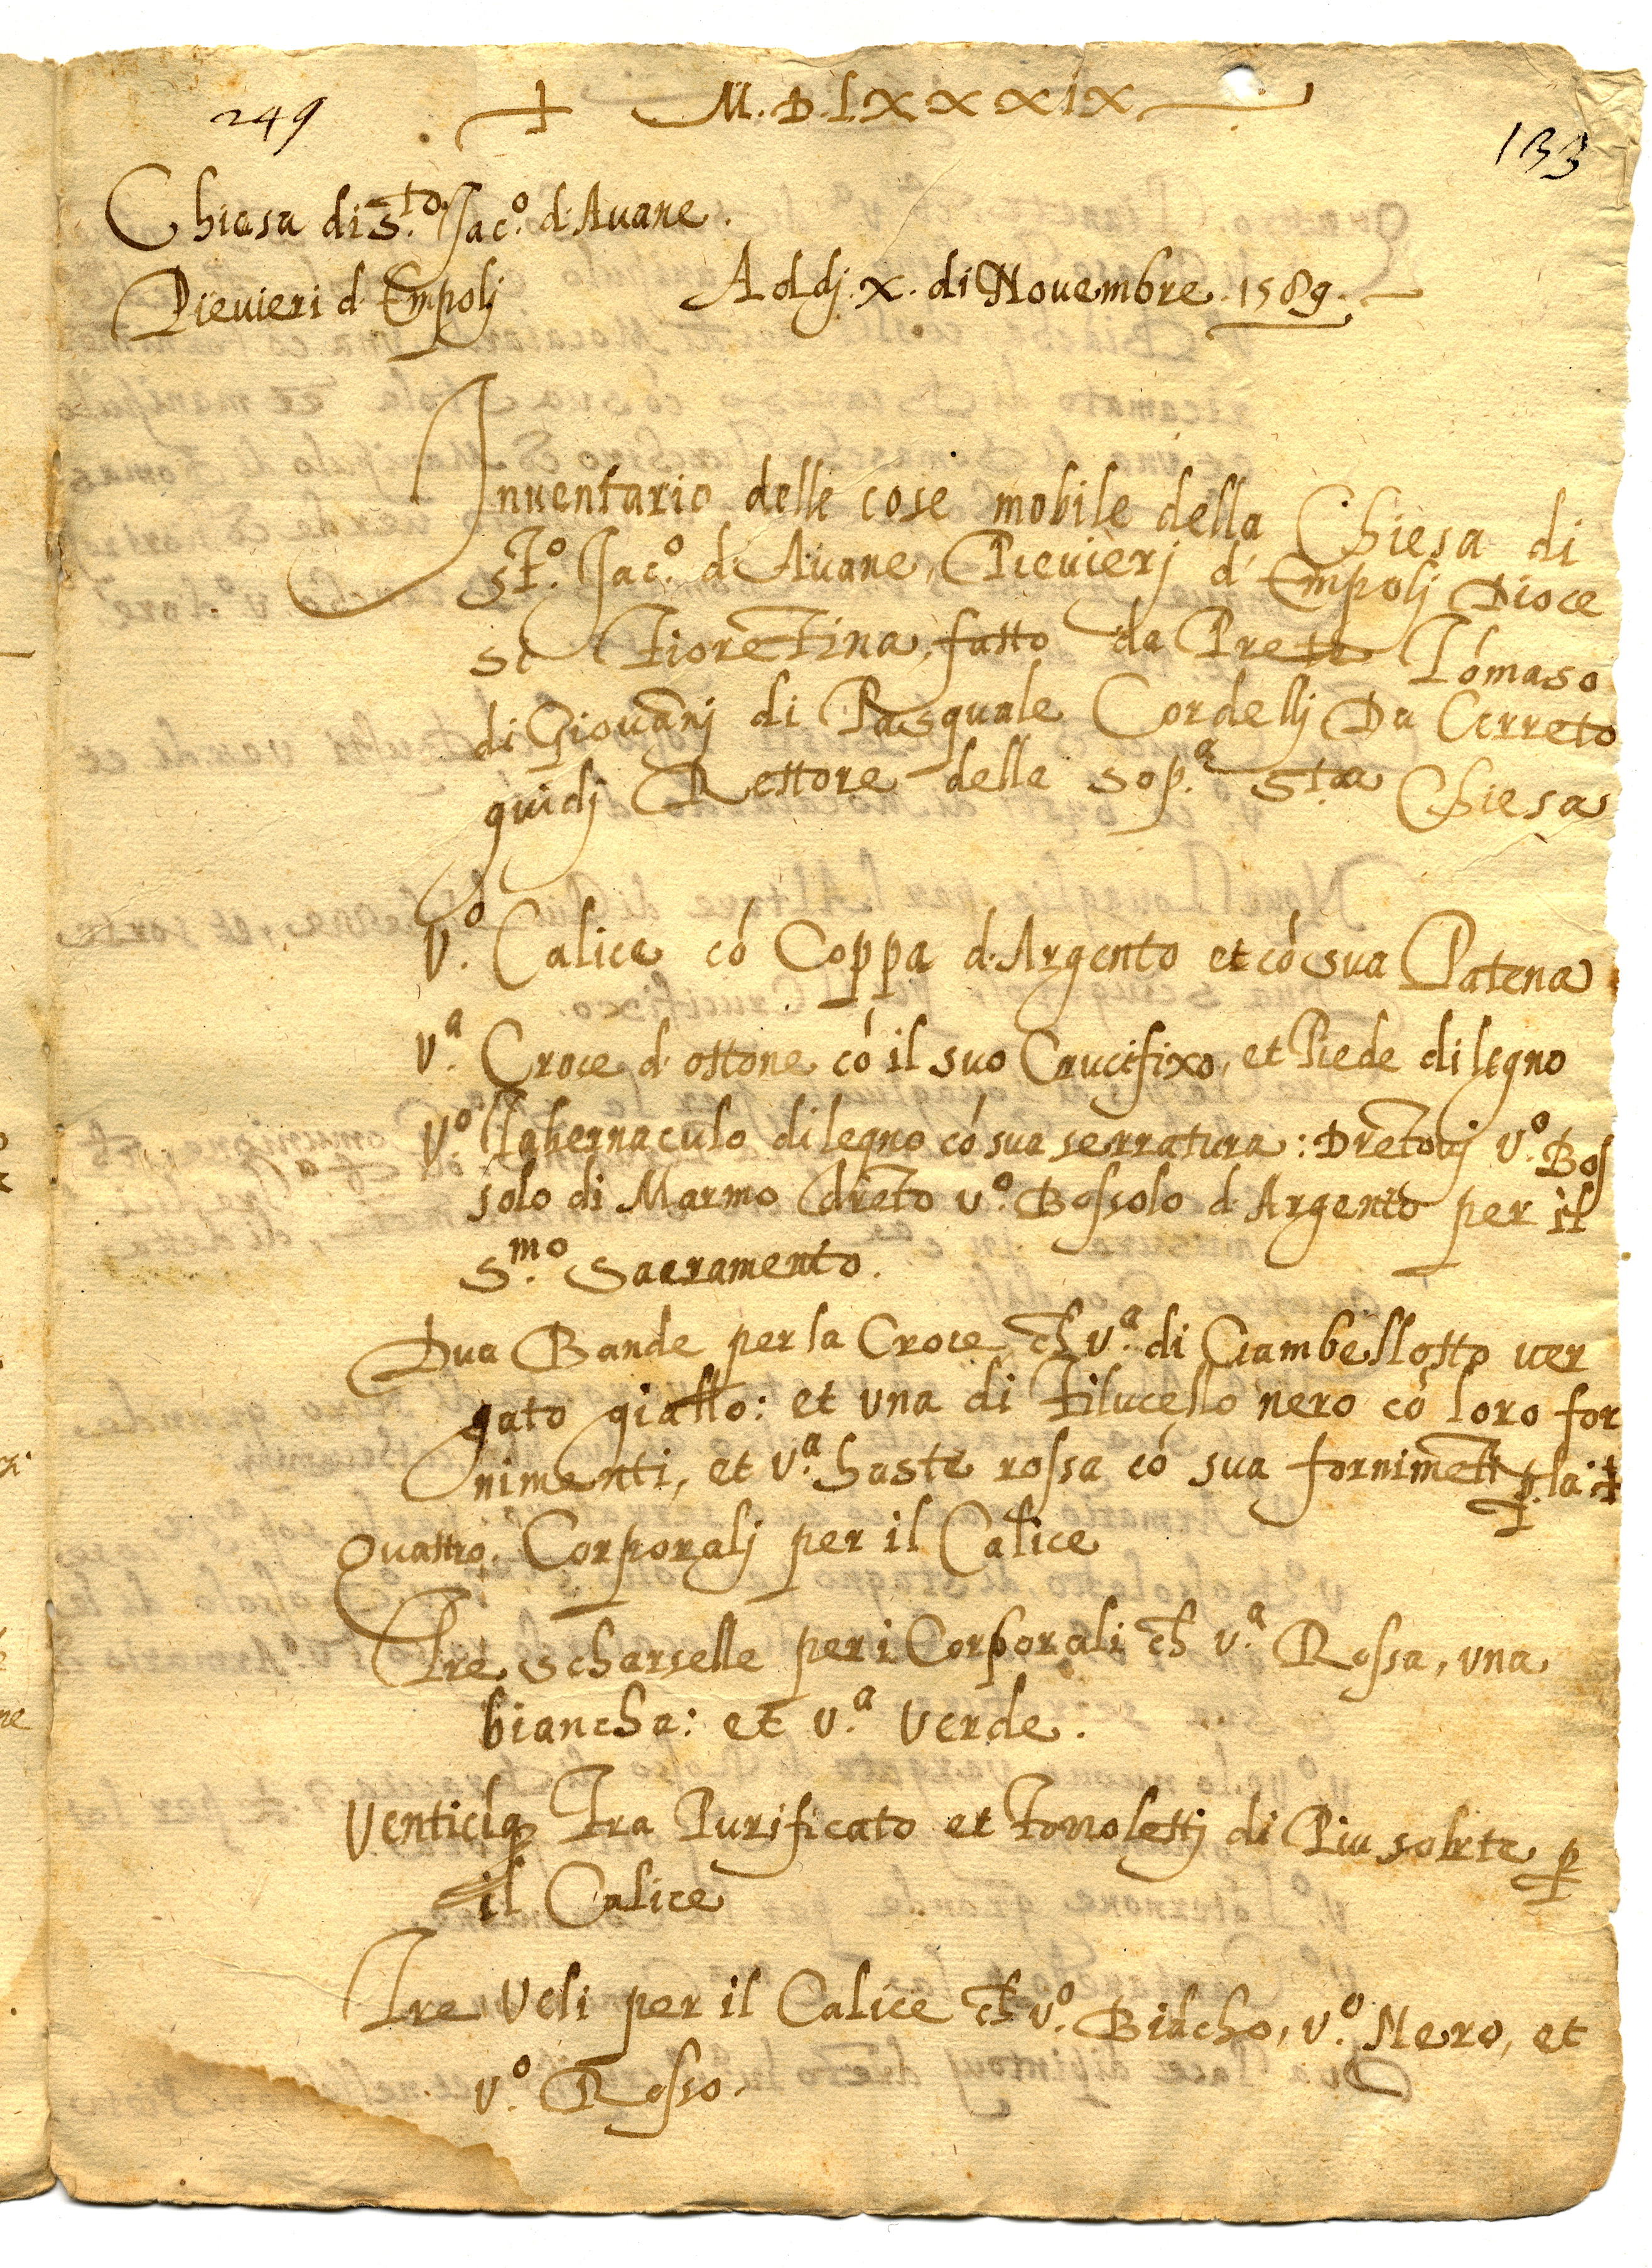 249 + M.D.LXXXXIX 133
Chiesa di S.to Jac.o d'Auane.
Pieuieri d'Empolj Addj. x. di Nouembre. 1589.
Inuentario delle cose mobile della Chiesa di
S.to Jac.o d'Auane, Pieuierj d'Empolj Dioce
se Fiorētina, fatto da Prete Tomaso
di Giouānj di Pasquale Cordellj Da Cerreto
guidj Rettore della sop.a S.ta Chiesa
V.o Calice cō Coppa d'Argento et cō sua Patena
V.a Croce d'ottone cō il suo Crucifixo, et Piede di legno
V.o Tabernaculo di legno cō sua serratura: Drētouj v.o Bos
solo di Marmo drēto v.o Bossolo d'Argento per il
S.mo Sacramento.
Dua Bande per la Croce ch v.a di Ciambellotto uer
gato giallo: et una di Filucello nero cō loro for
nimenti, et v.a haste rossa cō sua fornimēti p. la +
Quattro. Corporalj per il Calice
Tre scharselle per i Corporali ch v.a Rossa, una
biancha: et v.a verde.
Venticīq Tra Purificato et Touolettj di Piu sorte p
il Calice
Tre Veli per il Calice ch v.o Biācho, v.o Nero, et
v.o Rosso.